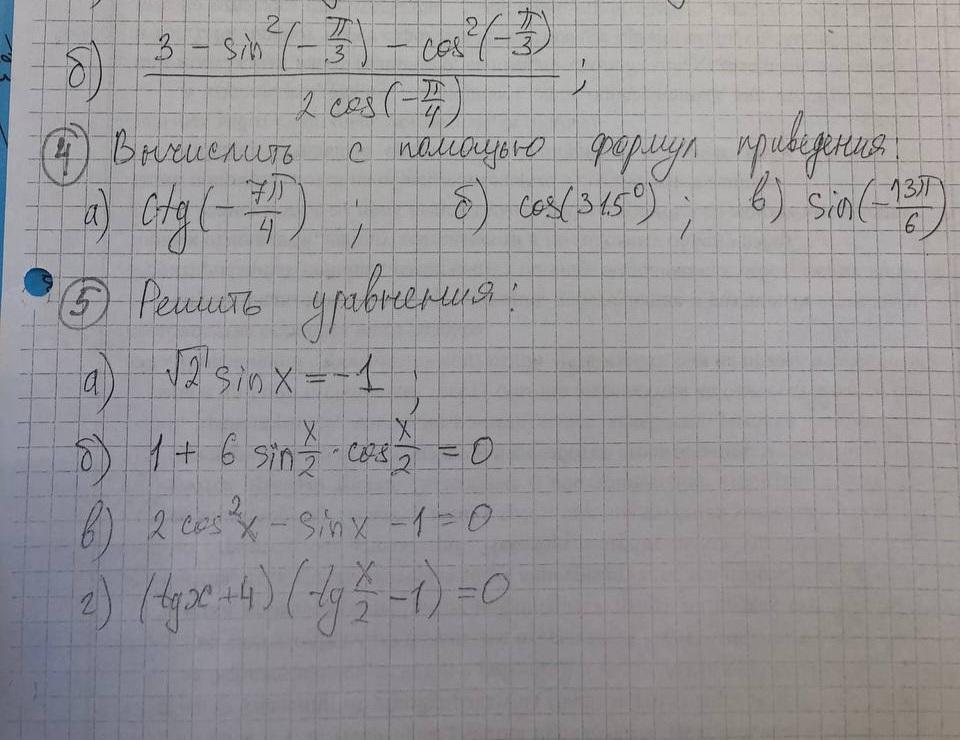 б) (3 - sin²(-π/3) - cos²(-π/3)) / (2 cos(-π/4)) ;
④ Вычислить с помощью формул приведения:
а) ctg(-7π/4) ; б) cos(315°) ; в) sin(-13π/6)
⑤ Решить уравнения:
а) √2 sin x = -1 ;
б) 1 + 6 sin x/2 · cos x/2 = 0
в) 2 cos²x - sin x - 1 = 0
г) (tg x + 4) (tg x/2 - 1) = 0